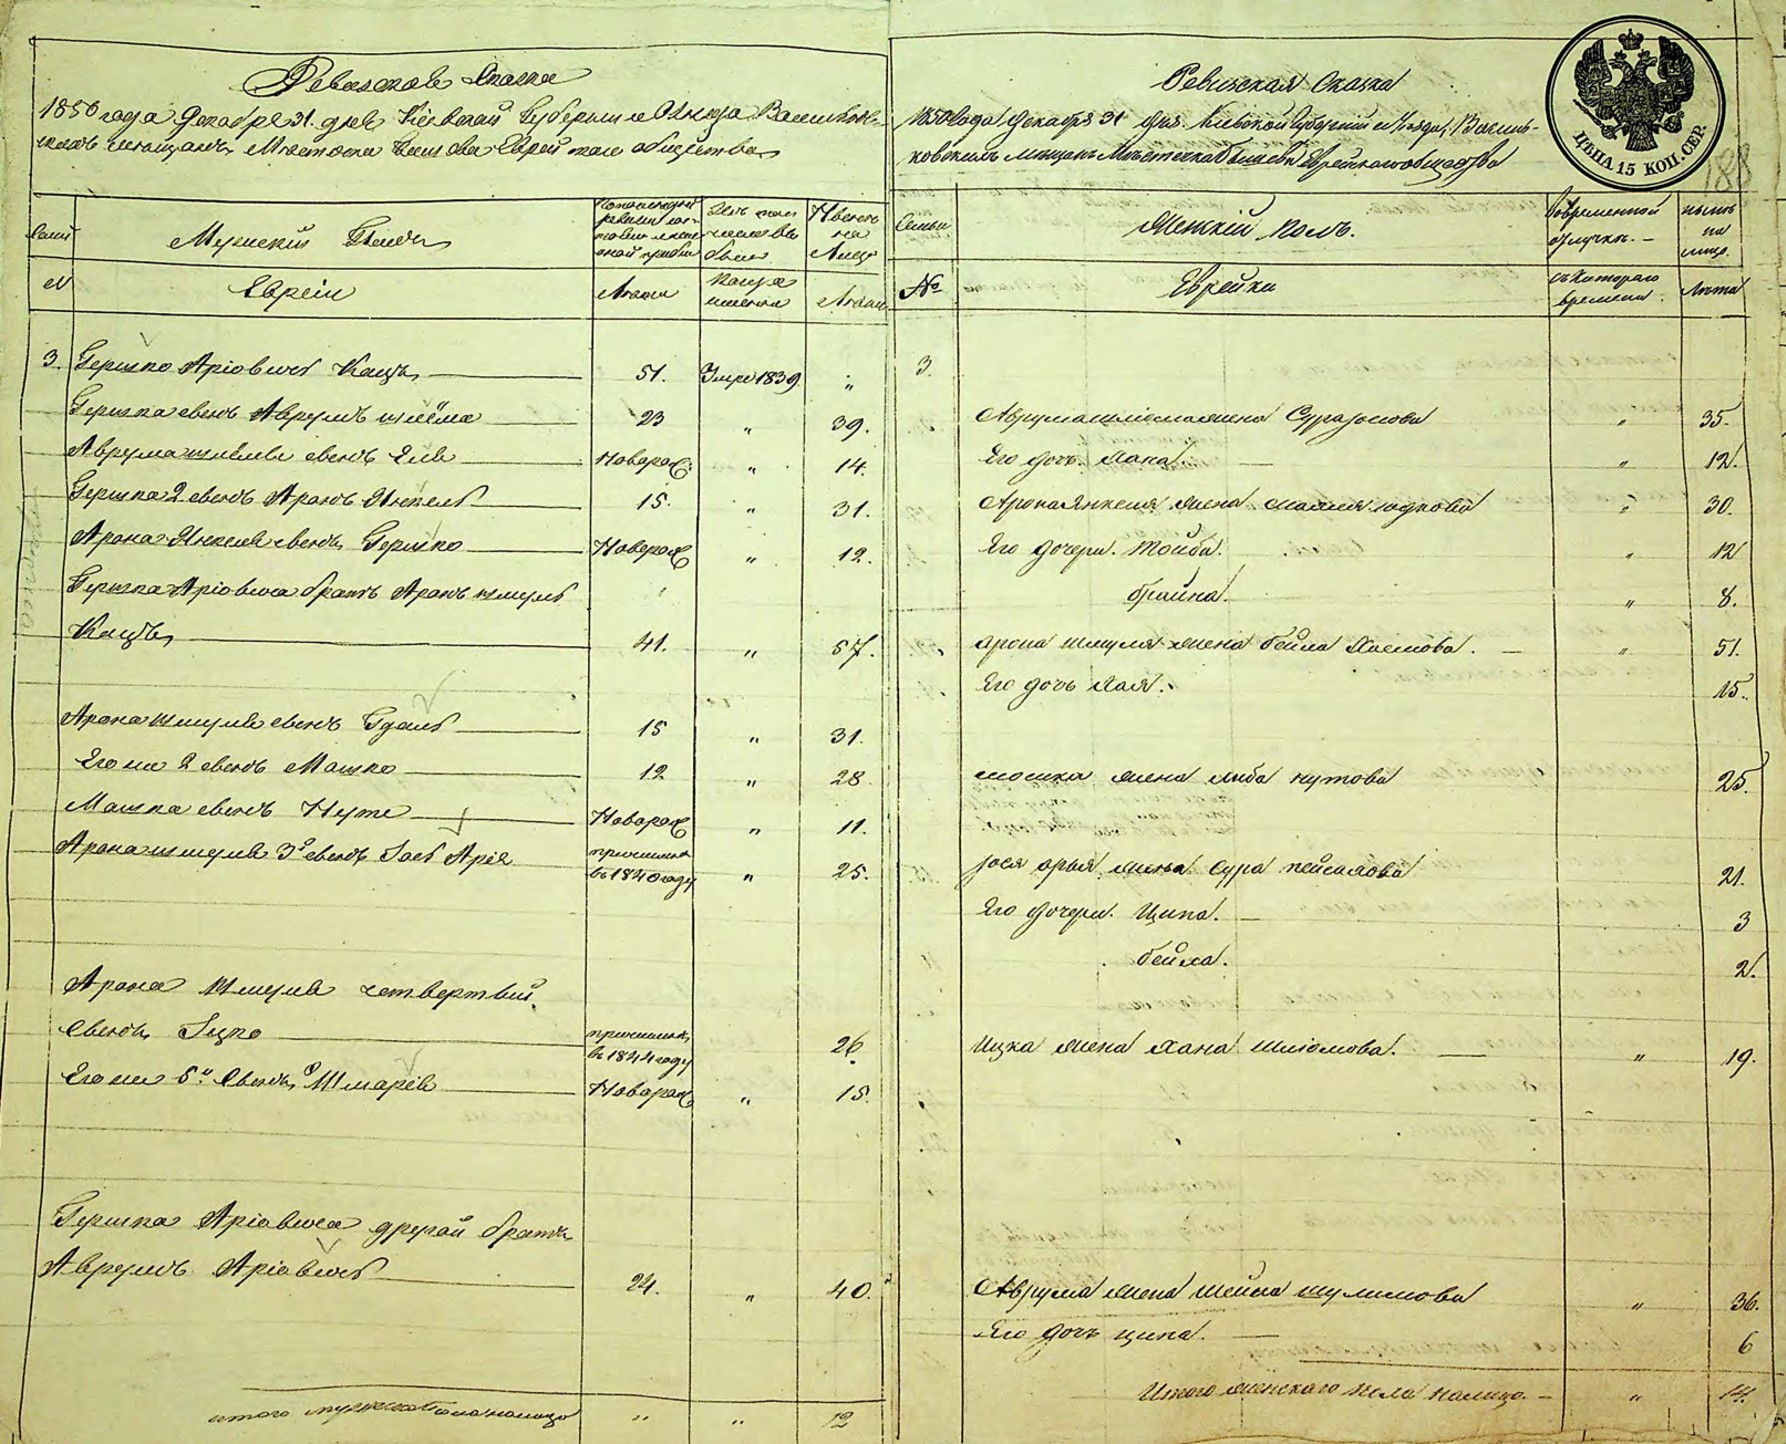 Ревизская Сказка
1850 года Декабря 31. дня Кіевской Губерніи и Уѣзда Васильков-
скихъ мещанъ Мѣстечка Еврейскаго общества
Семьи
Мужескій Полъ
Ныне на Лицо
№
Евреи
Лѣта
Когда именно
Лѣта
3. Гершко Аріовичъ Кацъ 51. Умре 1839 "
Гершка сынъ Аврумъ Шлёма 23 " 39.
Аврума Шлёмы сынъ Эля Новорож. " 14.
Гершка 2 сынъ Аронъ Янкель 15. " 31.
Арона Янкеля сынъ Гершко Новорож " 12.
Гершка Аріовича братъ Аронъ Шмуль
Кацъ 41. " 57.
Арона Шмуля сынъ Гдаль 15 " 31.
Его же 2 сынъ Мошко 12 " 28
Мошка сынъ Нута Новорож " 11.
Арона Шмуля 3й сынъ Іось Арія
въ 1840 году " 25.
Арона Шмуля четвертый
сынъ Іцко
въ 1844 году 26.
Его же 5й Сынъ Шмарія Новорож " 15.
Гершка Аріовича другой братъ
Аврумъ Аріовичъ 24. " 40.
итого мужеска пола налицо " " 12
Ревизская Сказка
1850 Года Декабря 31 дня. Кіевской Губерніи и Уѣзда, Василь-
ковскихъ мещанъ Мѣстечка Еврейскаго общества
ЦѢНА 15 КОП. СЕР.
188
Семьи
Женскій полъ.
Во временной отлучкѣ.
ныне на лицо.
№
Еврейки
Съ котораго времени
Лѣта
3.
Аврума Шлiома жена Сура Іосіова " 35.
Его дочь Хана. " 12.
Арона Янкеля жена Юдкова " 30.
Его дочери. Тойба. " 12
брайна. " 8.
арона шмуля жена бейла Хаемова. " 51.
Его дочь Хая. 15.
мошка жена либа нутова 25.
іося арья жена сура пейсахова 21.
Его дочери. Ципа. 3
бейла. 2.
Ицка жена Хана Шліомова. " 19.
Аврума жена шейна шулимова " 36.
Его дочь ципа. 6
Итого женскаго пола налицо. " 14.